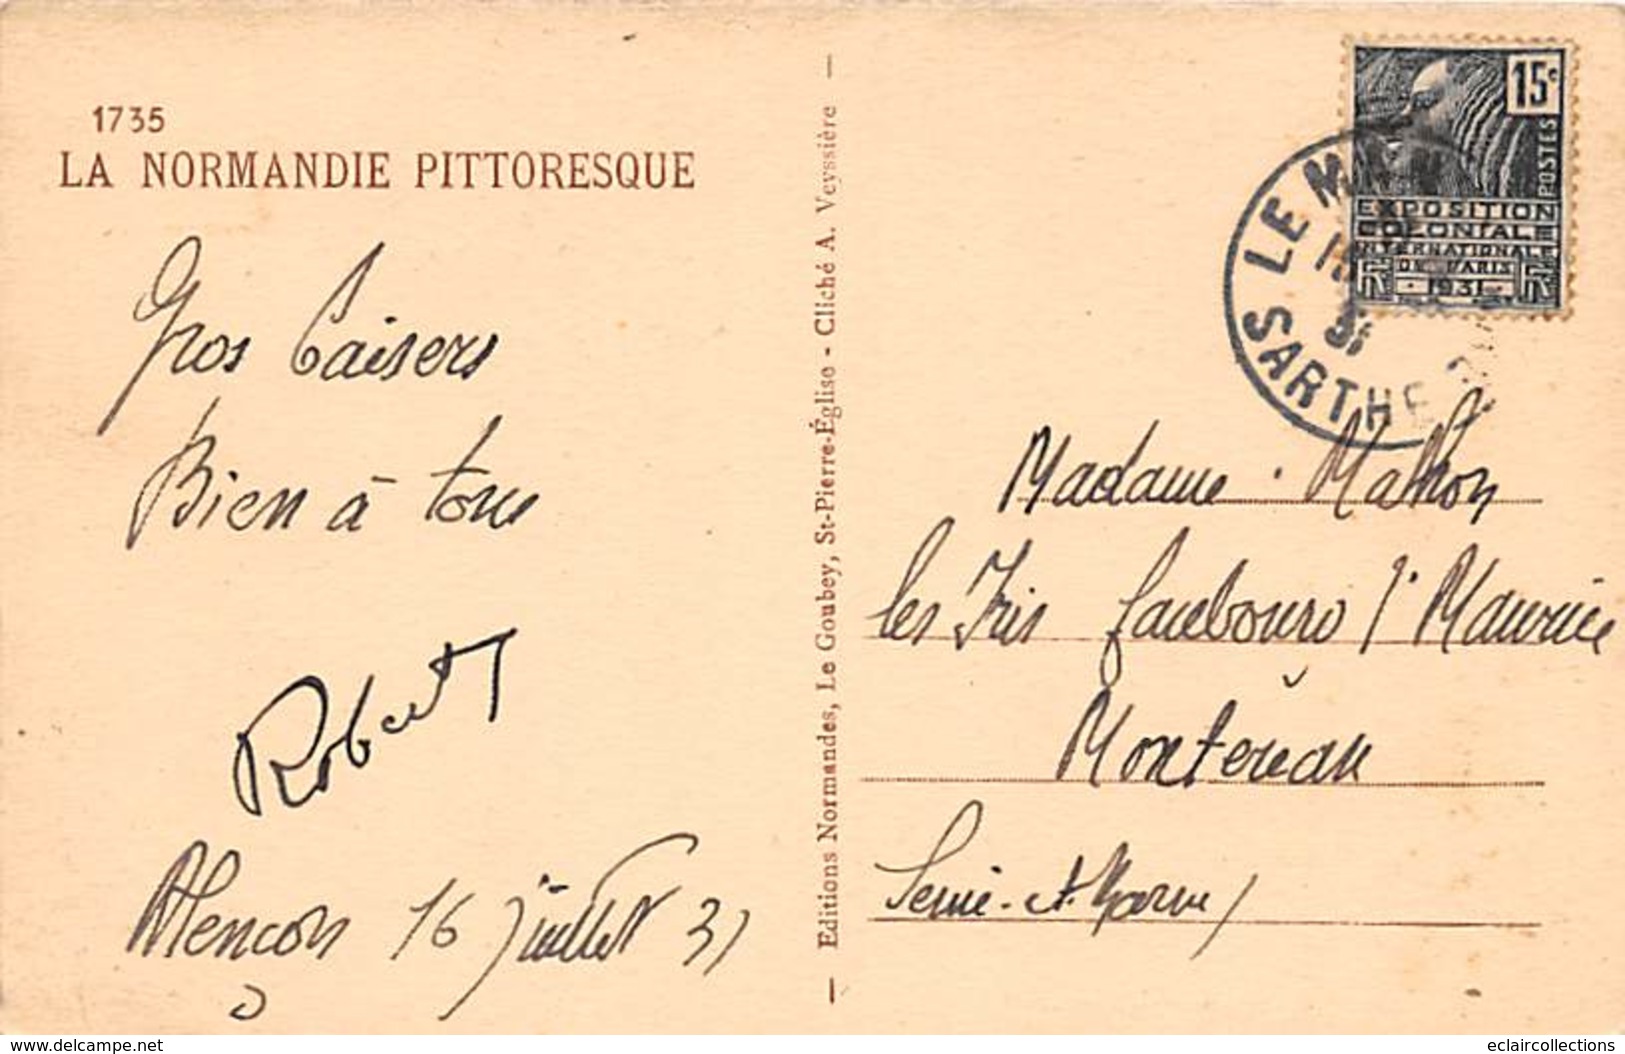 1735
LA NORMANDIE PITTORESQUE
Gros baisers
Bien à tous
Robert
Alençon 16 juillet 31
— Editions Normandes, Le Goubey, St-Pierre-Église - Cliché A. Veyssière —
15c
POSTES
EXPOSITION
COLONIALE
INTERNATIONALE
DE PARIS
RF · 1931 · RF
LE MANS
31
SARTHE
Madame Mathon
les Iris faubourg St Maurice
Montereau
Seine-et-Marne
www.delcampe.net
eclaircollections